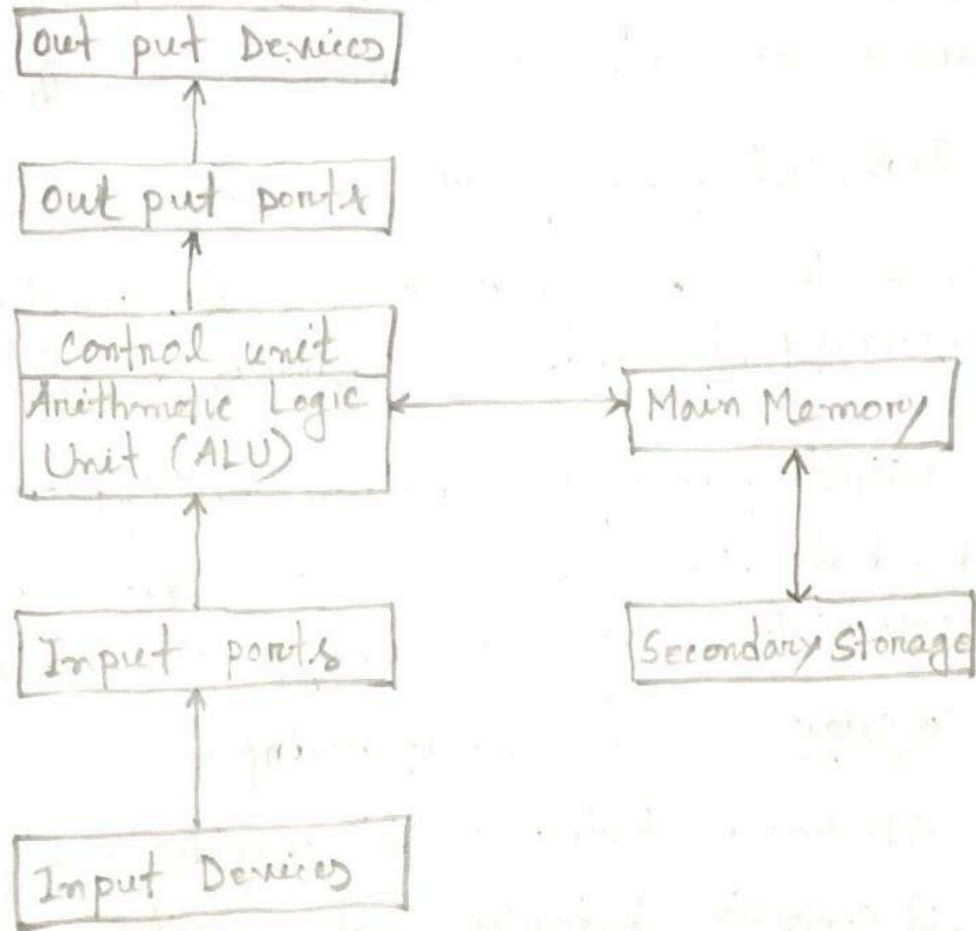 Out put Devices
Out put ports
Control unit
Arithmetic Logic
Unit (ALU)
Main Memory
Input ports
Secondary Storage
Input Devices